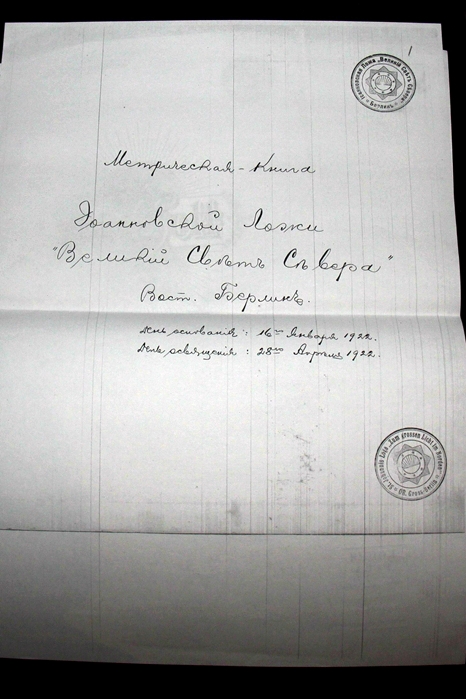 1
Іоанновская Ложа „Великій Свѣтъ Сѣвера“
Берлинъ
Метрическая-Книга
Іоанновской Ложи
"Великій Свѣтъ Сѣвера"
Вост. Берлинъ.
День основанія: 16го Января 1922.
День освященія: 28го Апрѣля 1922.
St. Johannis Loge „Zum grossen Licht im Norden“
Or. Gross-Berlin